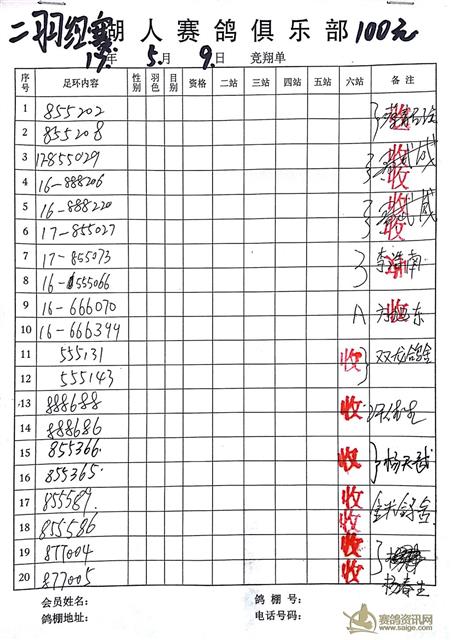 二羽组赛 湖人赛鸽俱乐部 100元
19年 5月 9日 竞翔单
序号 足环内容 性别 羽色 目别 资格 一站 二站 三站 四站 五站 六站 备注
1 855202
2 855208 收
3 17-855029 收
4 16-888206 收
5 16-888220 收
6 17-855027 收
7 17-855073 李浩南
8 16-555066
9 16-666070 收 东
10 16-666344
11 555131 收 双龙鸽舍
12 555143
13 888688 收
14 888686
15 855366 收 杨天武
16 855365
17 855587 收
18 855586 收
19 877004 收
20 877005 收 杨春生
会员姓名: 鸽棚号:
鸽棚地址: 电话号码:
赛鸽资讯网
www.saige.com